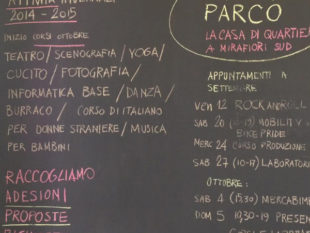 ATTIVITÀ INVERNALI
2014 - 2015
INIZIO CORSI OTTOBRE
TEATRO / SCENOGRAFIA / YOGA /
CUCITO / FOTOGRAFIA /
INFORMATICA BASE / DANZA /
BURRACO / CORSO DI ITALIANO
PER DONNE STRANIERE / MUSICA
PER BAMBINI
RACCOGLIAMO
ADESIONI
PROPOSTE
PARCO
LA CASA DI QUARTIE
A MIRAFIORI SUD
APPUNTAMENTI A
SETTEMBRE
VEN 12 ROCK AND ROLL
SAB 20 MOBILITY
BIKE PRIDE
MERC 24 CORSO PRODUZIONE
SAB 27 (10-17) LABORATOR
OTTOBRE:
SAB 4 (15,30) MERCABIM
DOM 5 10,30-19 PRESEN